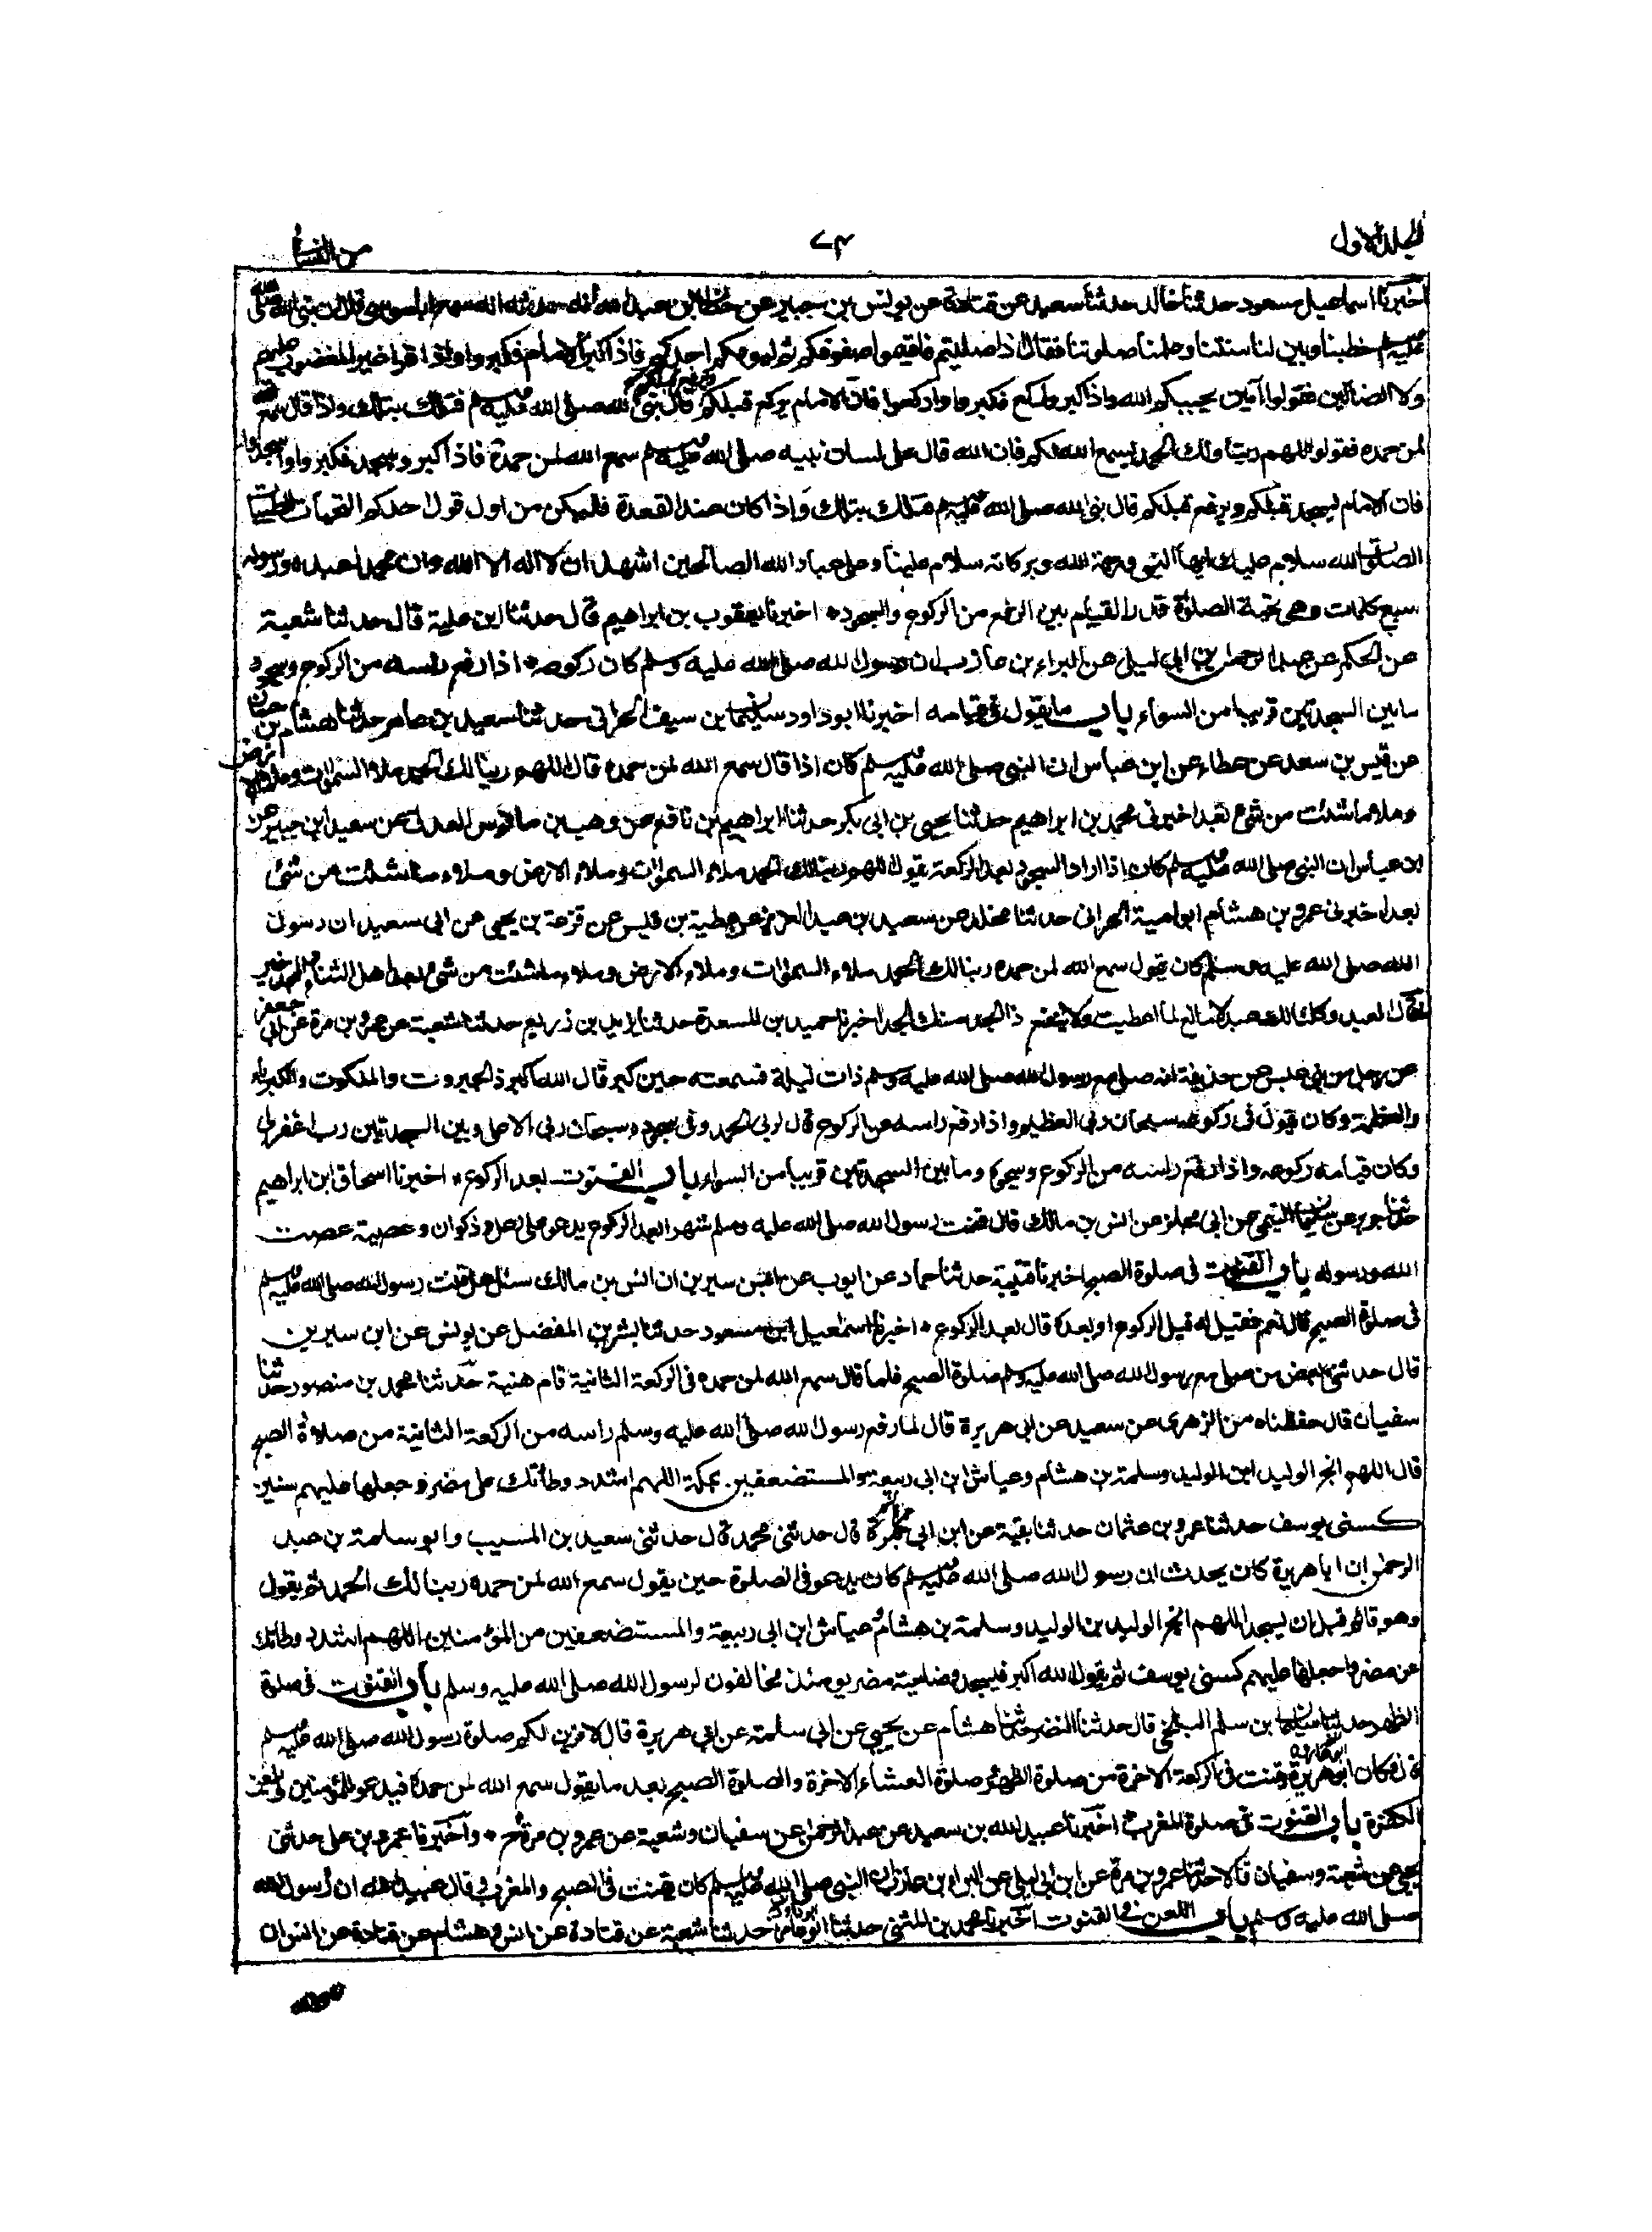 الجلد الاول
٧٤
من النسائي
اخبرنا اسماعيل مسعود حدثنا خالد حدثنا سعيد عن قتادة عن يونس بن جبير عن حطان بن عبد الله انه حدثه انه سمع اباموسى قال ان نبي الله صلى
عليه وسلم خطبنا وبين لنا سنتنا وعلمنا صلوتنا فقال اذا صليتم فاقيموا صفوفكم ثم ليؤمكم احدكم فاذا كبر الامام فكبروا واذا قرا غير المغضوب عليهم
ولا الضالين فقولوا آمين يجبكم الله واذا كبر وركع فكبروا واركعوا فان الامام يركع قبلكم ويرفع قبلكم قال نبي الله صلى الله عليه وسلم فتلك بتلك واذا قال سمع الله
لمن حمده فقولوا اللهم ربنا ولك الحمد يسمع الله لكم فان الله قال على لسان نبيه صلى الله عليه وسلم سمع الله لمن حمدة فاذا كبر وسجد فكبروا واسجدوا
فان الامام يسجد قبلكم ويرفع قبلكم قال نبي الله صلى الله عليه وسلم فتلك بتلك واذا كان عند القعدة فليكن من اول قول احدكم التحيات الطيبات
الصلوات لله سلام عليك ايها النبي ورحمة الله وبركاته سلام علينا وعلى عباد الله الصالحين اشهد ان لا اله الا الله وان محمدا عبده ورسوله
سبع كلمات وهي تحية الصلوة قدر القيام بين الرفع من الركوع والسجود * اخبرنا يعقوب بن ابراهيم قال حدثنا ابن علية قال حدثنا شعبة
عن الحكم عن عبد الرحمن بن ابي ليلى عن البراء بن عازب ان رسول الله صلى الله عليه وسلم كان ركوعه * اذا رفع راسه من الركوع وسجود
مابين السجدتين قريبا من السواء باب ما يقول في قيامه اخبرنا ابوداود سليمان بن سيف الحراني حدثنا سعيد بن عامر حدثنا هشام بن حسان
عن قيس بن سعد عن عطاء عن ابن عباس ان النبي صلى الله عليه وسلم كان اذا قال سمع الله لمن حمده قال اللهم ربنا لك الحمد ملاء السموات وملاء الارض
وملاء ما شئت من شيء بعد اخبرني محمد بن ابراهيم حدثنا يحيى بن ابي بكر حدثنا ابراهيم بن نافع عن وهب بن مانوس العدني عن سعيد ابن جبير عن
ابن عباس ان النبي صلى الله عليه وسلم كان اذا اراد السجود بعد الركعة يقول اللهم ربنا لك الحمد ملاء السموات وملاء الارض وملاء ما شئت من شئ
بعد اخبرني عمرو بن هشام ابو امية الحراني حدثنا مخلد عن سعيد بن عبد العزيز عن عطية بن قيس عن قزعة بن يحيى عن ابي سعيد ان رسول
الله صلى الله عليه وسلم كان يقول سمع الله لمن حمده ربنا لك الحمد ملاء السموات وملاء الارض وملاء ما شئت من شئ بعد اهل الثناء والمجد خير
ما قال العبد وكلنا لك عبد لا مانع لما اعطيت ولا ينفع ذا الجد منك الجد اخبرنا حميد بن المسعدة حدثنا يزيد بن زريع حدثنا شعبة عن عمرو بن مرة عن ابي حمزة
عن رجل من بني عبس عن حذيفة انه صلى مع رسول الله صلى الله عليه وسلم ذات ليلة فسمعته حين كبر قال الله اكبر ذا الجبروت والملكوت والكبرياء
والعظمة وكان يقول في ركوعه سبحان ربي العظيم واذا رفع راسه من الركوع قال لربي الحمد وفي سجوده سبحان ربي الاعلى وبين السجدتين رب اغفر لي
وكان قيامه ركوعه واذا رفع راسه من الركوع وسجوده وما بين السجدتين قريبا من السواء باب القنوت بعد الركوع * اخبرنا اسحاق ابن ابراهيم
حدثنا جرير عن سليمان التيمي عن ابي مجلز عن انس بن مالك قال قنت رسول الله صلى الله عليه وسلم شهرا بعد الركوع يدعو على رعل وذكوان وعصية عصت
الله ورسوله باب القنوت في صلوة الصبح اخبرنا قتيبة حدثنا حماد عن ايوب عن ابن سيرين ان انس بن مالك سئل هل قنت رسول الله صلى الله عليه وسلم
في صلوة الصبح قال نعم فقيل له قبل الركوع او بعده قال بعد الركوع * اخبرنا اسمعيل ابن مسعود حدثنا بشر بن المفضل عن يونس عن ابن سيرين
قال حدثني بعض من صلى مع رسول الله صلى الله عليه وسلم صلوة الصبح فلما قال سمع الله لمن حمده في الركعة الثانية قام هنية حدثنا محمد بن منصور حدثنا
سفيان قال حفظناه من الزهري عن سعيد عن ابي هريرة قال لما رفع رسول الله صلى الله عليه وسلم راسه من الركعة الثانية من صلاة الصبح
قال اللهم انج الوليد ابن الوليد وسلمة بن هشام وعياش ابن ابي ربيعة والمستضعفين بمكة اللهم اشدد وطأتك على مضر واجعلها عليهم سنين
كسني يوسف حدثنا عمرو بن عثمان حدثنا بقية عن ابن ابي حمزة قال حدثني محمد قال حدثني سعيد بن المسيب وابو سلمة بن عبد
الرحمن ان ابا هريرة كان يحدث ان رسول الله صلى الله عليه وسلم كان يدعو في الصلوة حين يقول سمع الله لمن حمده ربنا لك الحمد ثم يقول
وهو قائم قبل ان يسجد اللهم انج الوليد بن الوليد وسلمة بن هشام وعياش ابن ابي ربيعة والمستضعفين من المؤمنين اللهم اشدد وطاتك
على مضر واجعلها عليهم كسني يوسف ثم يقول الله اكبر فيسجد وضاحية مضر يومئذ مخالفون لرسول الله صلى الله عليه وسلم باب القنوت في صلوة
الظهر حدثنا سليمان بن سلم البلخي قال حدثنا النضر حدثنا هشام عن يحيى عن ابي سلمة عن ابي هريرة قال لاقربن لكم صلوة رسول الله صلى الله عليه وسلم
قال فكان ابو هريرة يقنت في الركعة الاخرة من صلوة الظهر وصلوة العشاء الاخرة والصلوة الصبح بعد ما يقول سمع الله لمن حمده فيدعو للمؤمنين ويلعن
الكفرة باب القنوت في صلوة المغرب اخبرنا عبيد الله بن سعيد عن عبد الرحمن عن سفيان وشعبة عن عمرو بن مرة ح * واخبرنا عمرو بن علي حدثني
يحيى عن شعبة وسفيان قالا حدثنا عمرو بن مرة عن ابن ابي ليلى عن البراء بن عازب ان النبي صلى الله عليه وسلم كان يقنت في الصبح والمغرب وقال عبيد الله ان رسول الله
صلى الله عليه وسلم باب اللعن في القنوت اخبرنا محمد بن المثنى حدثنا ابو داود حدثنا شعبة عن قتادة عن انس وهشام عن قتادة عن انس ان